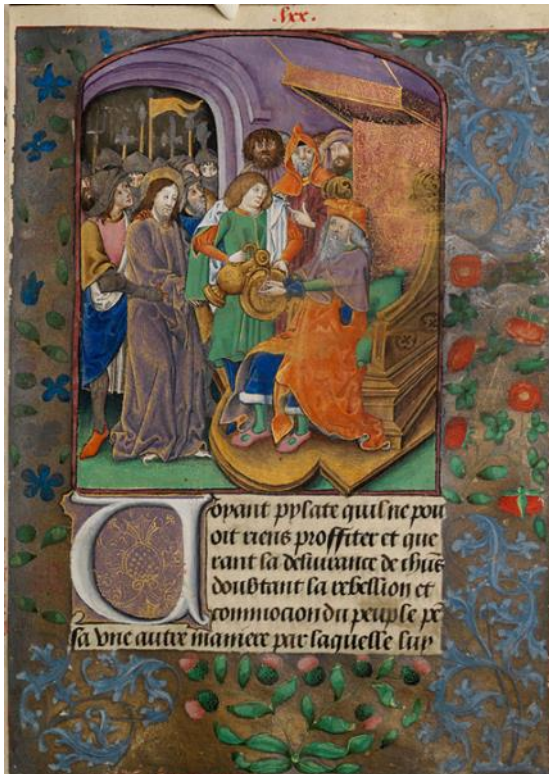 .lxx.
Voyant pylate quil ne pou
oit riens proffiter et que
rant la deliurance de ihūs
doubtant la rebellion et
commocion du peuple pē
sa vne autre maniere par laquelle luy